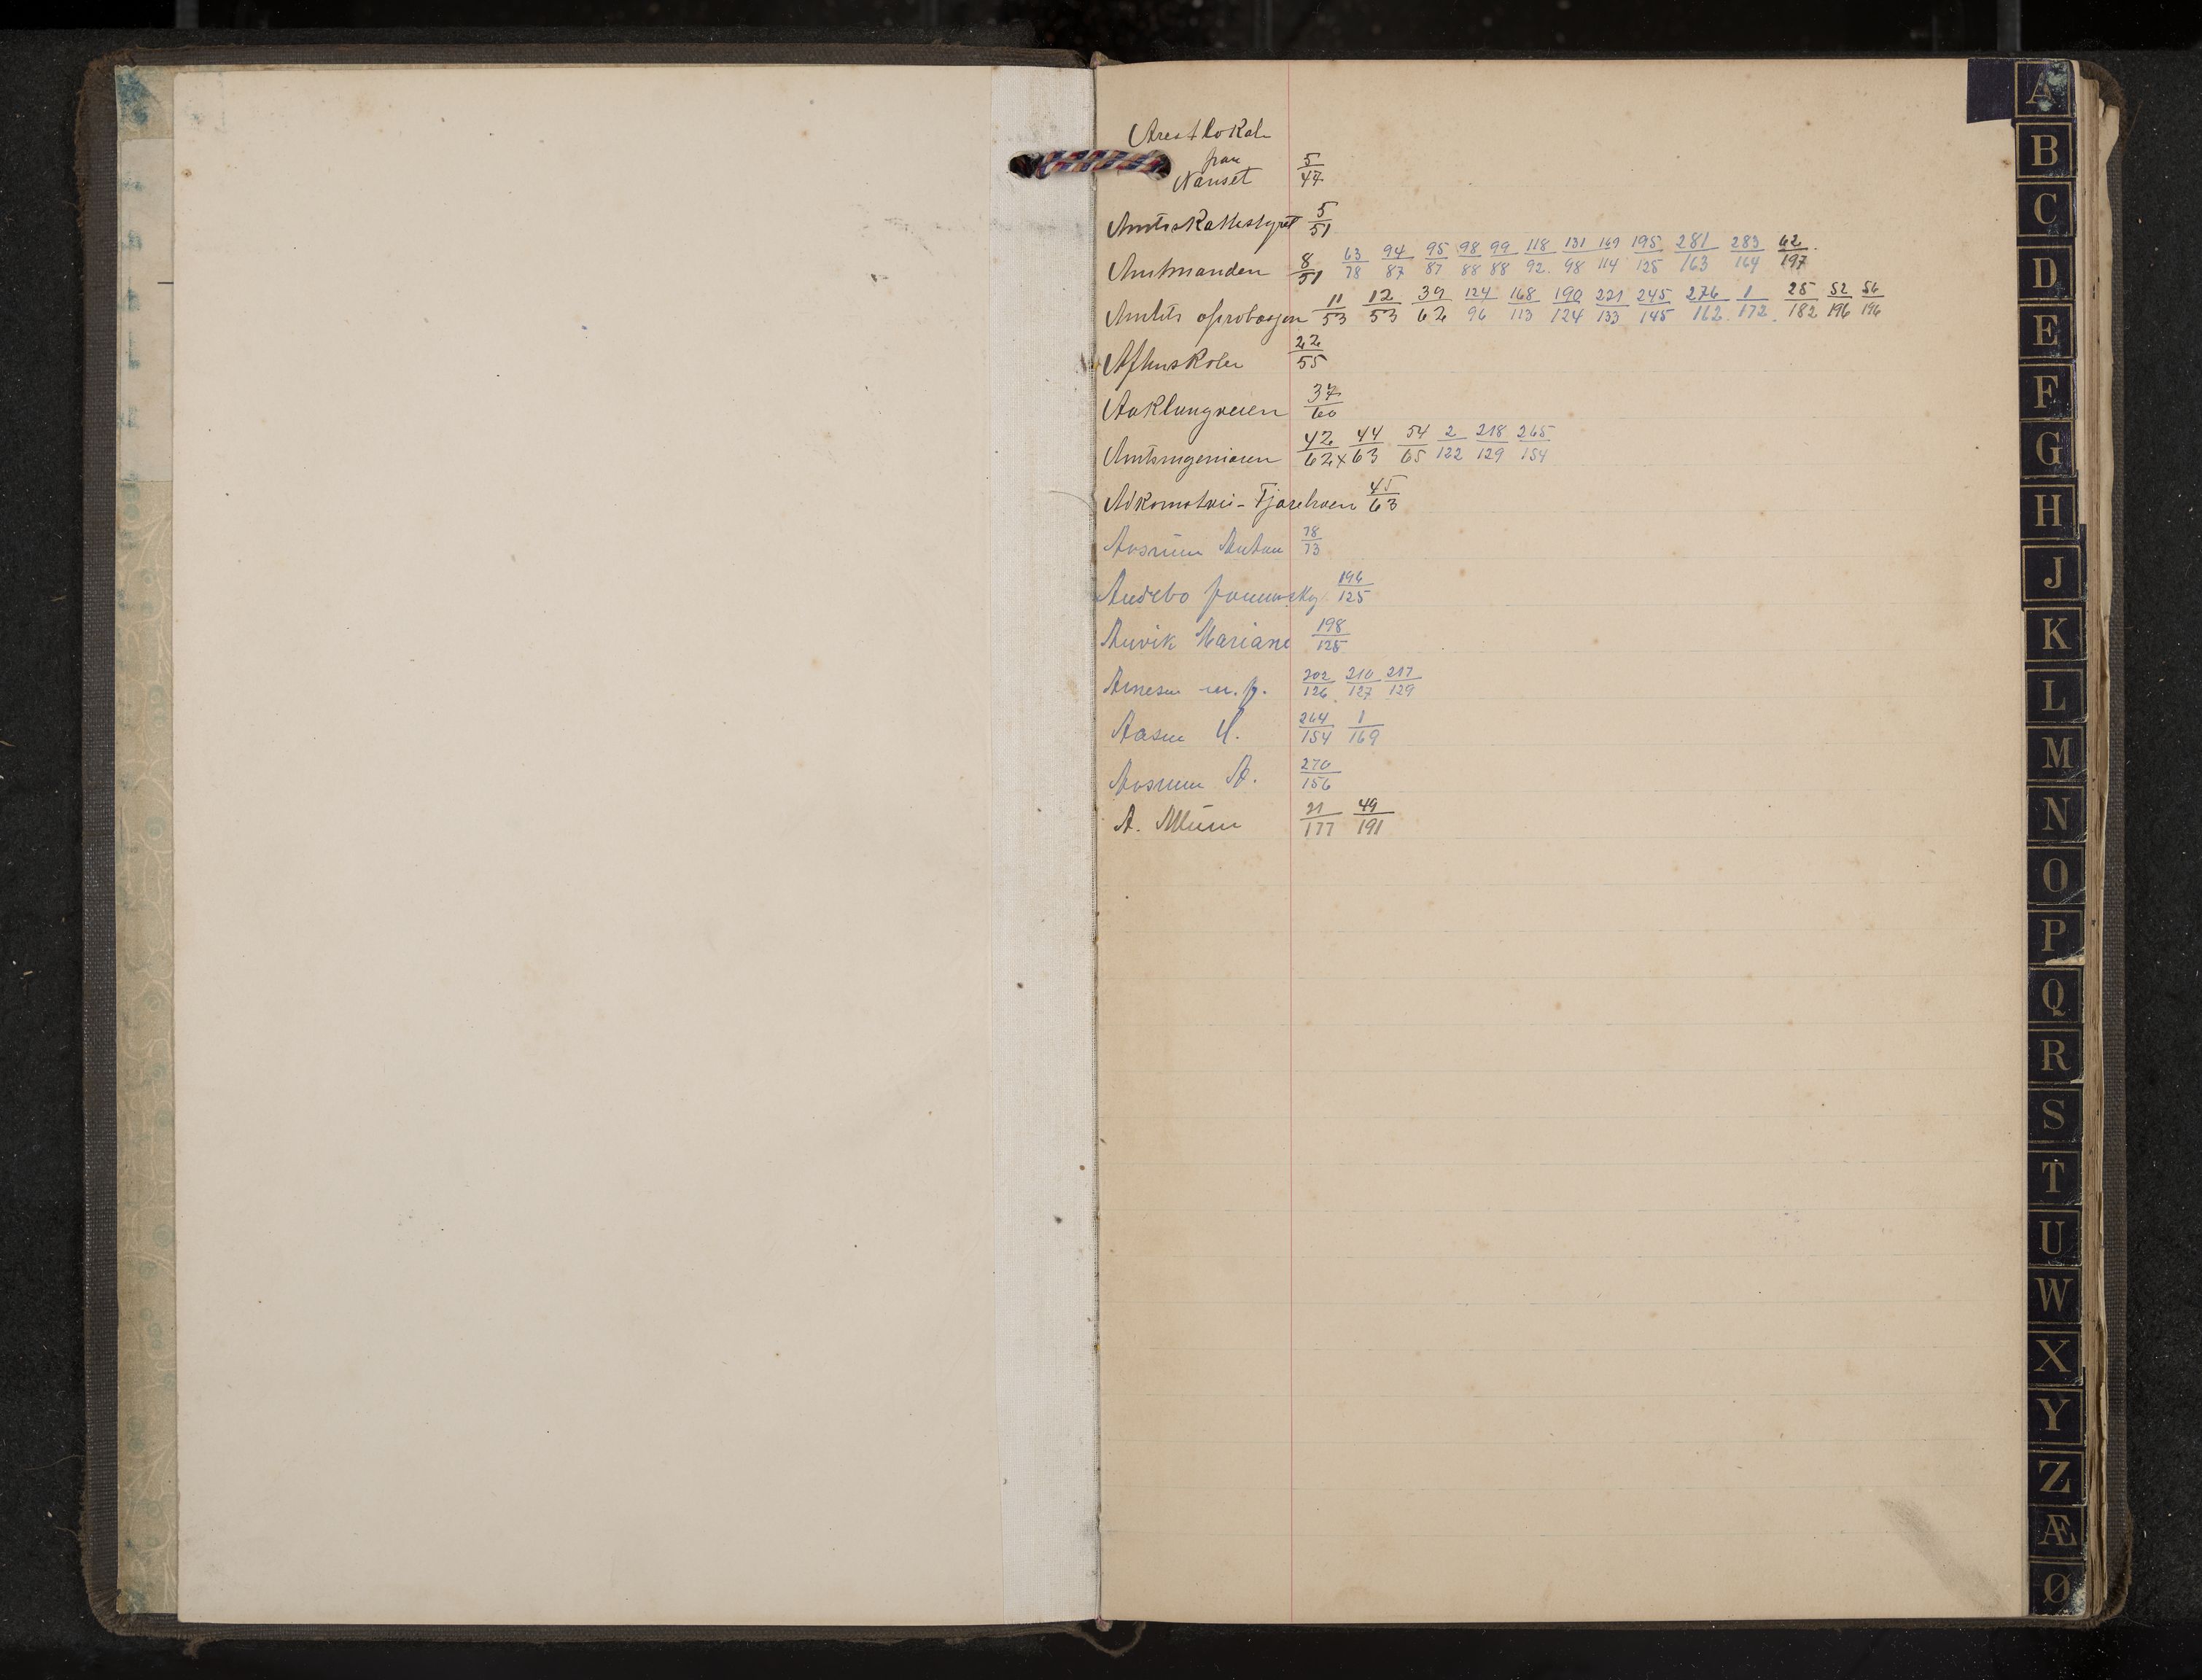 Arestlokale
fra
Nanset 5/47
Amtskattestyret 5/51
Amtmanden 8/51 63/78 94/87 95/87 98/88 99/88 118/92 131/98 169/114 195/125 281/163 283/164 62/197
Amtets aprobasjon 11/53 12/53 39/62 124/96 168/113 190/124 221/133 245/145 276/162 1/172 25/182 52/196 56/196
Aftenskolen 22/55
Aaklungveien 37/60
Amtsingeniøren 42/62 x 44/63 54/65 2/122 218/129 265/154
Adkomstvei - Fjærehveen 45/63
Aasrum Anton 78/73
Andebo 196/125
Auvik Mariane 198/125
Arnesen m. fl. 202/126 210/127 217/129
Aasen H. 264/154 1/169
Aasrum A. 270/156
A. Allum 21/177 49/191
A
B
C
D
E
F
G
H
J
K
L
M
N
O
P
Q
R
S
T
U
W
X
Y
Z
Æ
Ø